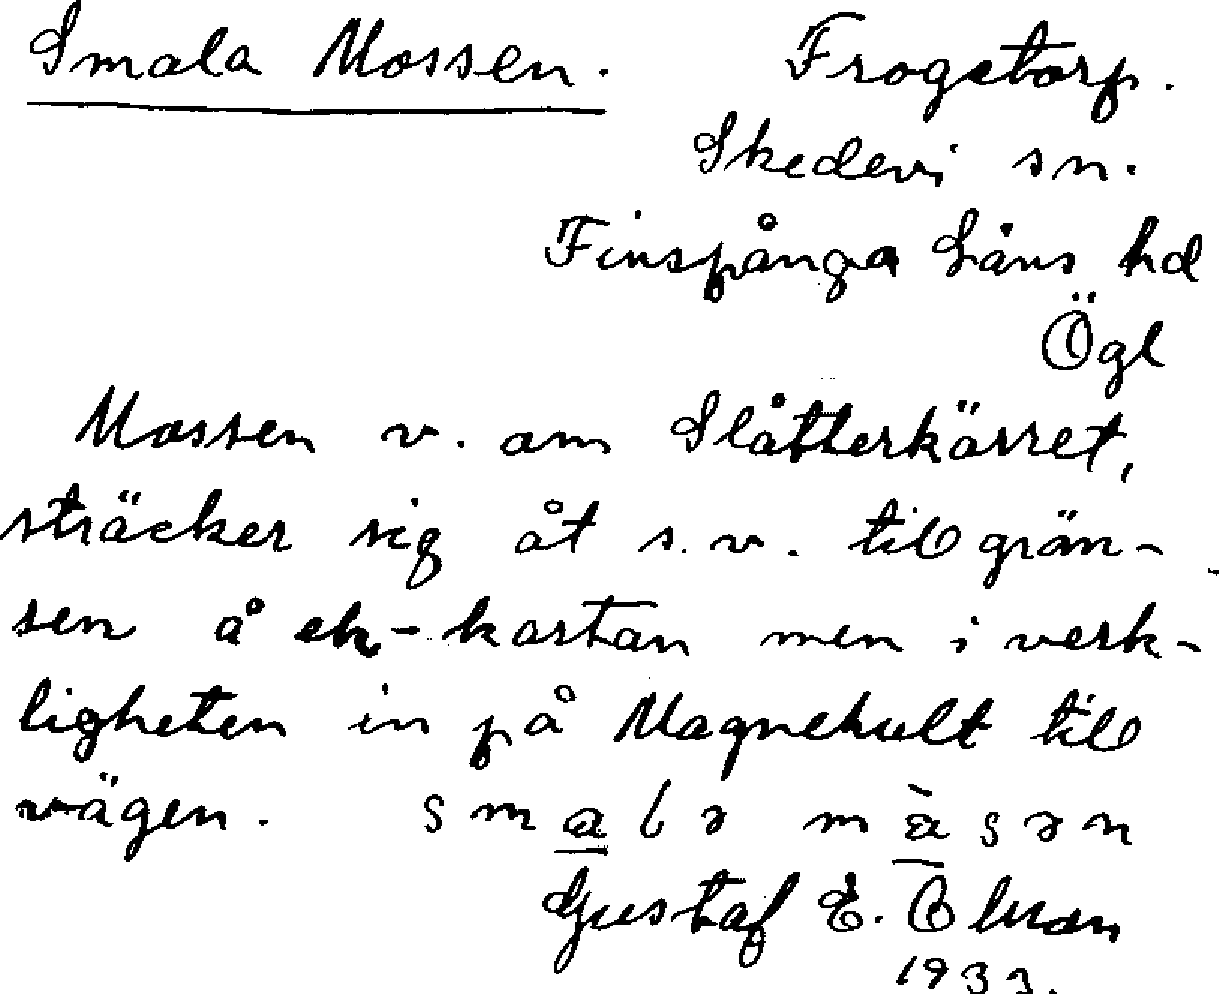 Smala Mossen. Frogstorp.
Skedevi sn.
Finspånga Läns hd
Ögl
Mossen v. om Slåtterkärret,
sträcker sig åt s.v. till grän-
sen å ek-kartan men i verk-
ligheten in på Magnehult till
vägen. smalə màsən
Gustaf E.
1933.